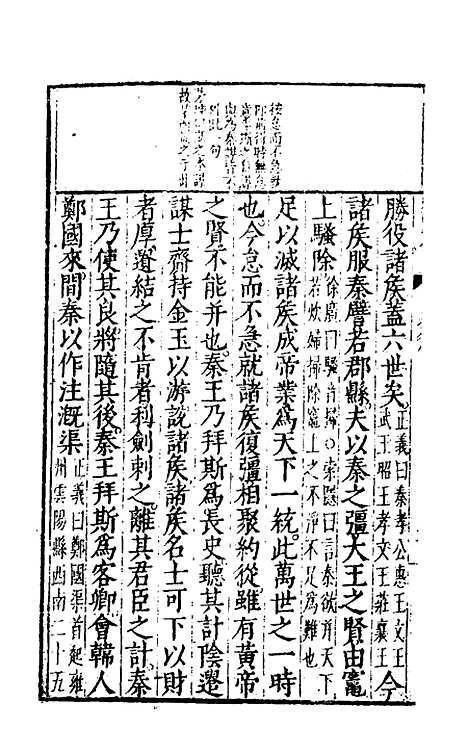 按怠而不急
勝役諸矦蓋六世矣正義曰秦孝公惠王文王武王昭王孝文王莊襄王今
諸矦服秦譬若郡縣夫以秦之彊大王之賢由竈
上騷除徐廣曰騷音掃○索隱曰言秦欲并天下若炊婦掃除竈上之不淨不足爲難也
足以滅諸矦成帝業爲天下一統此萬世之一時
也今怠而不急就諸矦復彊相聚約從雖有黃帝
之賢不能并也秦王乃拜斯爲長史聽其計陰遣
謀士齎持金玉以游說諸矦諸矦名士可下以財
者厚遺結之不肯者利劍刺之離其君臣之計秦
王乃使其良將隨其後秦王拜斯爲客卿會韓人
鄭國來間秦以作注漑渠正義曰鄭國渠首起雍州雲陽縣西南二十五